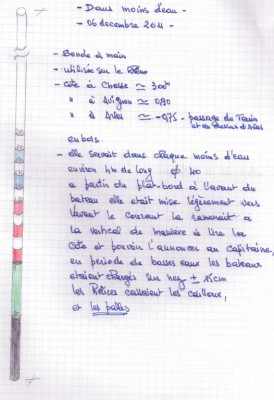 - Dans moins d'eau -
- 06 decembre 2011 -
- Sonde à main
- utilisée sur le Rhône
- côte à Chasse ≃ 3.00m
" à Avignon ≃ 0,90
" à Arles ≃ -0,75 - passage de Terrin
et au dessus d'Arles
en bois.
- elle servait dans chaque moins d'eau
environ 4m de long ø 40
a partir du plat-bord à l'avant du
bateau elle était mise légèrement vers
l'avant le courant la ramenait a
la vertical de manière à lire la
côte et pouvoir l'annoncer au capitaine,
en période de basses eaux les bateaux
etaient chargés sur nez ± 15cm
les hélices calaient les cailloux,
et les pâles